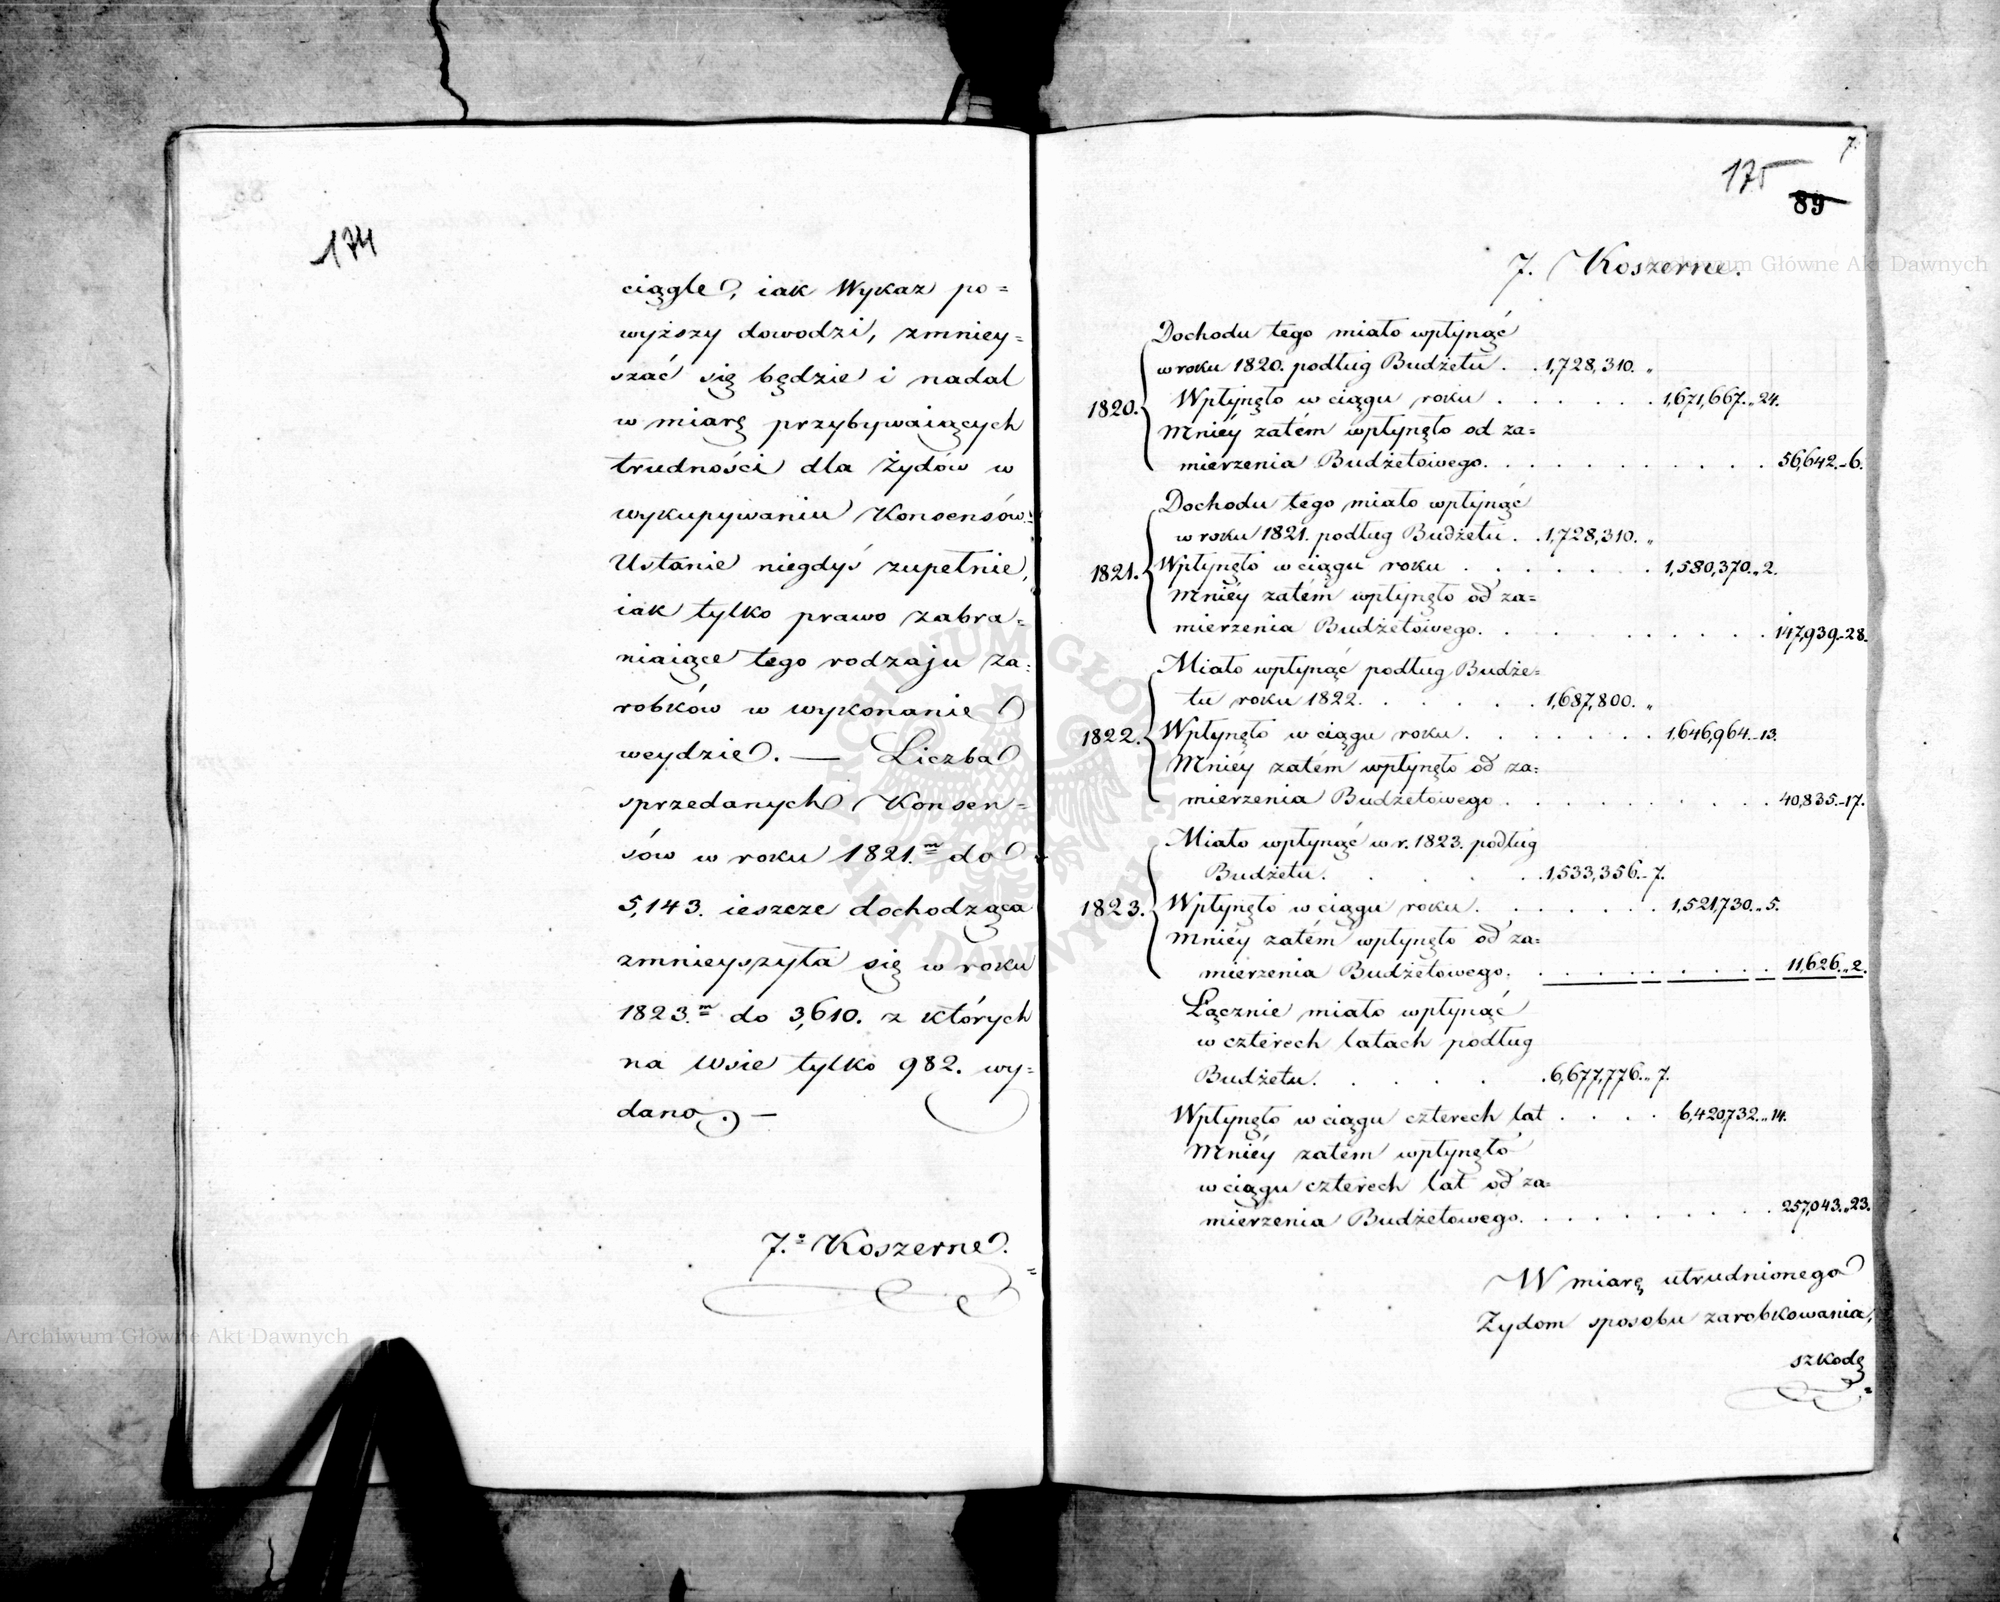 174
ciągle, iak Wykaz po=
wyższy dowodzi, zmniey=
szać się będzie i nadal
w miarę przybywaiących
trudności dla Żydów w
wykupywaniu Konsensów.
Ustanie niegdyś zupełnie,
iak tylko prawo zabra=
niaiące tego rodzaju za=
robków w wykonanie
weydzie. — Liczba
sprzedanych Konsen=
sów w roku 1821.m do
5,143. ieszcze dochodząca
zmnieyszyła się w roku
1823.m do 3,610. z których
na Wsie tylko 982. wy=
dano. —
7.° Koszerne.
7.
175
89
7. Koszerne.
Dochodu tego miało wpłynąć
w roku 1820. podług Budżetu . . 1,728,310. „
1820. Wpłynęło w ciągu roku . . . . . . 1,671,667. „ 24.
Mniéy zatém wpłynęło od za=
mierzenia Budżetowego. . . . . . . . . . 56,642. „ 6.
Dochodu tego miało wpłynąć
w roku 1821. podług Budżetu . . 1,728,310. „
1821. Wpłynęło w ciągu roku . . . . . . 1,580,370. „ 2.
Mniéy zatém wpłynęło od za=
mierzenia Budżetowego. . . . . . . . . . 147,939. „ 28.
Miało wpłynąć podług Budże=
tu roku 1822. . . . . . 1,687,800. „
1822. Wpłynęło w ciągu roku . . . . . . 1,646,964. „ 13.
Mniéy zatém wpłynęło od za=
mierzenia Budżetowego . . . . . . . . . . 40,835. „ 17.
Miało wpłynąć w r. 1823. podług
Budżetu. . . . . . 1,533,356. „ 7.
1823. Wpłynęło w ciągu roku . . . . . . 1,521,730. „ 5.
Mniéy zatém wpłynęło od za=
mierzenia Budżetowego. . . . . . . . . . 11,626. „ 2.
Łącznie miało wpłynąć
w czterech latach podług
Budżetu. . . . . . 6,677,776. „ 7.
Wpłynęło w ciągu czterech lat . . . . 6,420,732. „ 14.
Mniéy zatém wpłynęło
w ciągu czterech lat od za=
mierzenia Budżetowego. . . . . . . . . . 257,043. „ 23.
W miarę utrudnionego
Żydom sposobu zarobkowania,
szkodę
Archiwum Główne Akt Dawnych
Archiwum Główne Akt Dawnych
ARCHIWUM GŁÓWNE · AKT DAWNYCH ·